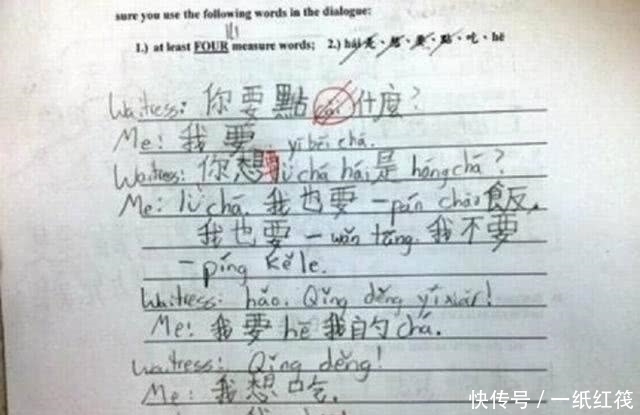 sure you use the following words in the dialogue:
1.) at least FOUR measure words; 2.) hái是、想、要、點、吃、hē
Waitress: 你要點cài什麼?
Me: 我要 yībēi chá.
Waitress: 你想要lǜchá hái是 hóngchá?
Me: lǜchá. 我也要一pán chǎo飯,
我也要一wǎn tāng. 我不要
一píng kělè.
Waitress: hǎo. Qǐng děng yíxiàr!
Me: 我要 hē 我的 chá.
Waitress: Qǐng děng!
Me: 我想吃.
快传号/一纸红筏